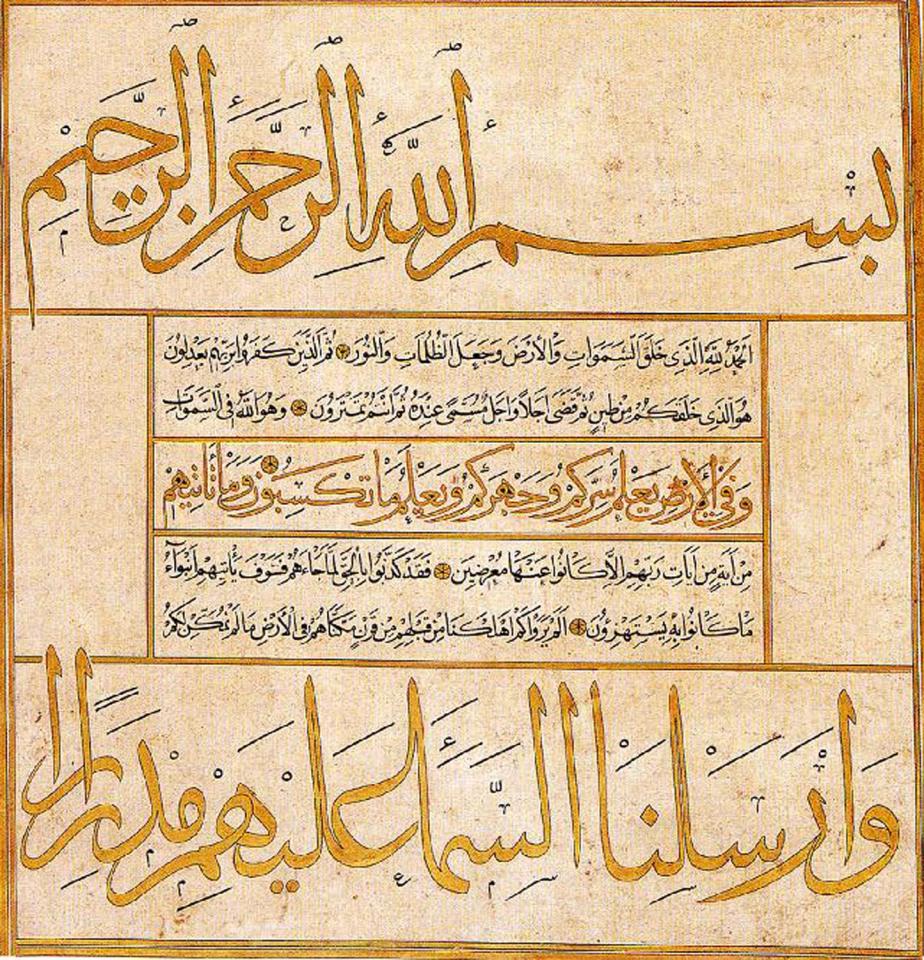 بِسْمِ اللَّهِ الرَّحْمَنِ الرَّحِيمِ
الْحَمْدُ لِلَّهِ الَّذِي خَلَقَ السَّمَوَاتِ وَالْأَرْضَ وَجَعَلَ الظُّلُمَاتِ وَالنُّورَ ثُمَّ الَّذِينَ كَفَرُوا بِرَبِّهِمْ يَعْدِلُونَ
هُوَ الَّذِي خَلَقَكُمْ مِنْ طِينٍ ثُمَّ قَضَى أَجَلًا وَأَجَلٌ مُسَمًّى عِنْدَهُ ثُمَّ أَنْتُمْ تَمْتَرُونَ وَهُوَ اللَّهُ فِي السَّمَوَاتِ
وَفِي الْأَرْضِ يَعْلَمُ سِرَّكُمْ وَجَهْرَكُمْ وَيَعْلَمُ مَا تَكْسِبُونَ وَمَا تَأْتِيهِمْ
مِنْ آيَةٍ مِنْ آيَاتِ رَبِّهِمْ إِلَّا كَانُوا عَنْهَا مُعْرِضِينَ فَقَدْ كَذَّبُوا بِالْحَقِّ لَمَّا جَاءَهُمْ فَسَوْفَ يَأْتِيهِمْ أَنْبَاءُ
مَا كَانُوا بِهِ يَسْتَهْزِؤُنَ أَلَمْ يَرَوْا كَمْ أَهْلَكْنَا مِنْ قَبْلِهِمْ مِنْ قَرْنٍ مَكَّنَّاهُمْ فِي الْأَرْضِ مَا لَمْ نُمَكِّنْ لَكُمْ
وَأَرْسَلْنَا السَّمَاءَ عَلَيْهِمْ مِدْرَارًا